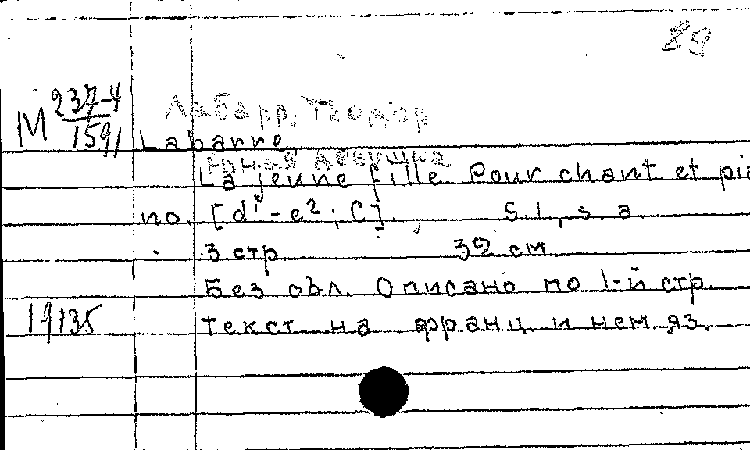 89
М 237-4
1591
Лабарр, Теодор
Labarre
Юная девушка
La jeune fille. Pour chant et pia
no. [d¹-e²; C]. S. l., s. a.
3 стр. 32 см
Без обл. Описано по 1-й стр.
19135
Текст на франц. и нем. яз.